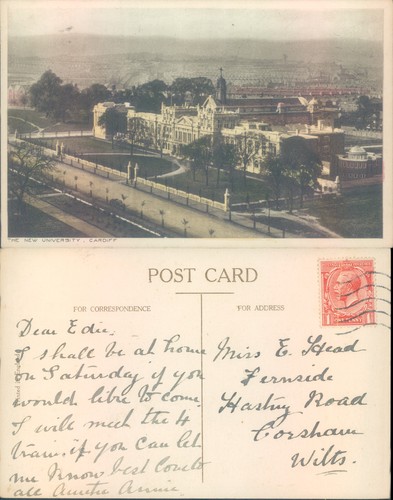 THE NEW UNIVERSITY. CARDIFF
POST CARD
FOR CORRESPONDENCE
FOR ADDRESS
Dear Edie.
I shall be at home
on Saturday if you
would like to come.
I will meet the 4
train, if you can let
me know best love to
all Auntie Annie.
Miss E. Head
Fernside
Hastry Road
Corsham
Wilts.
1 1